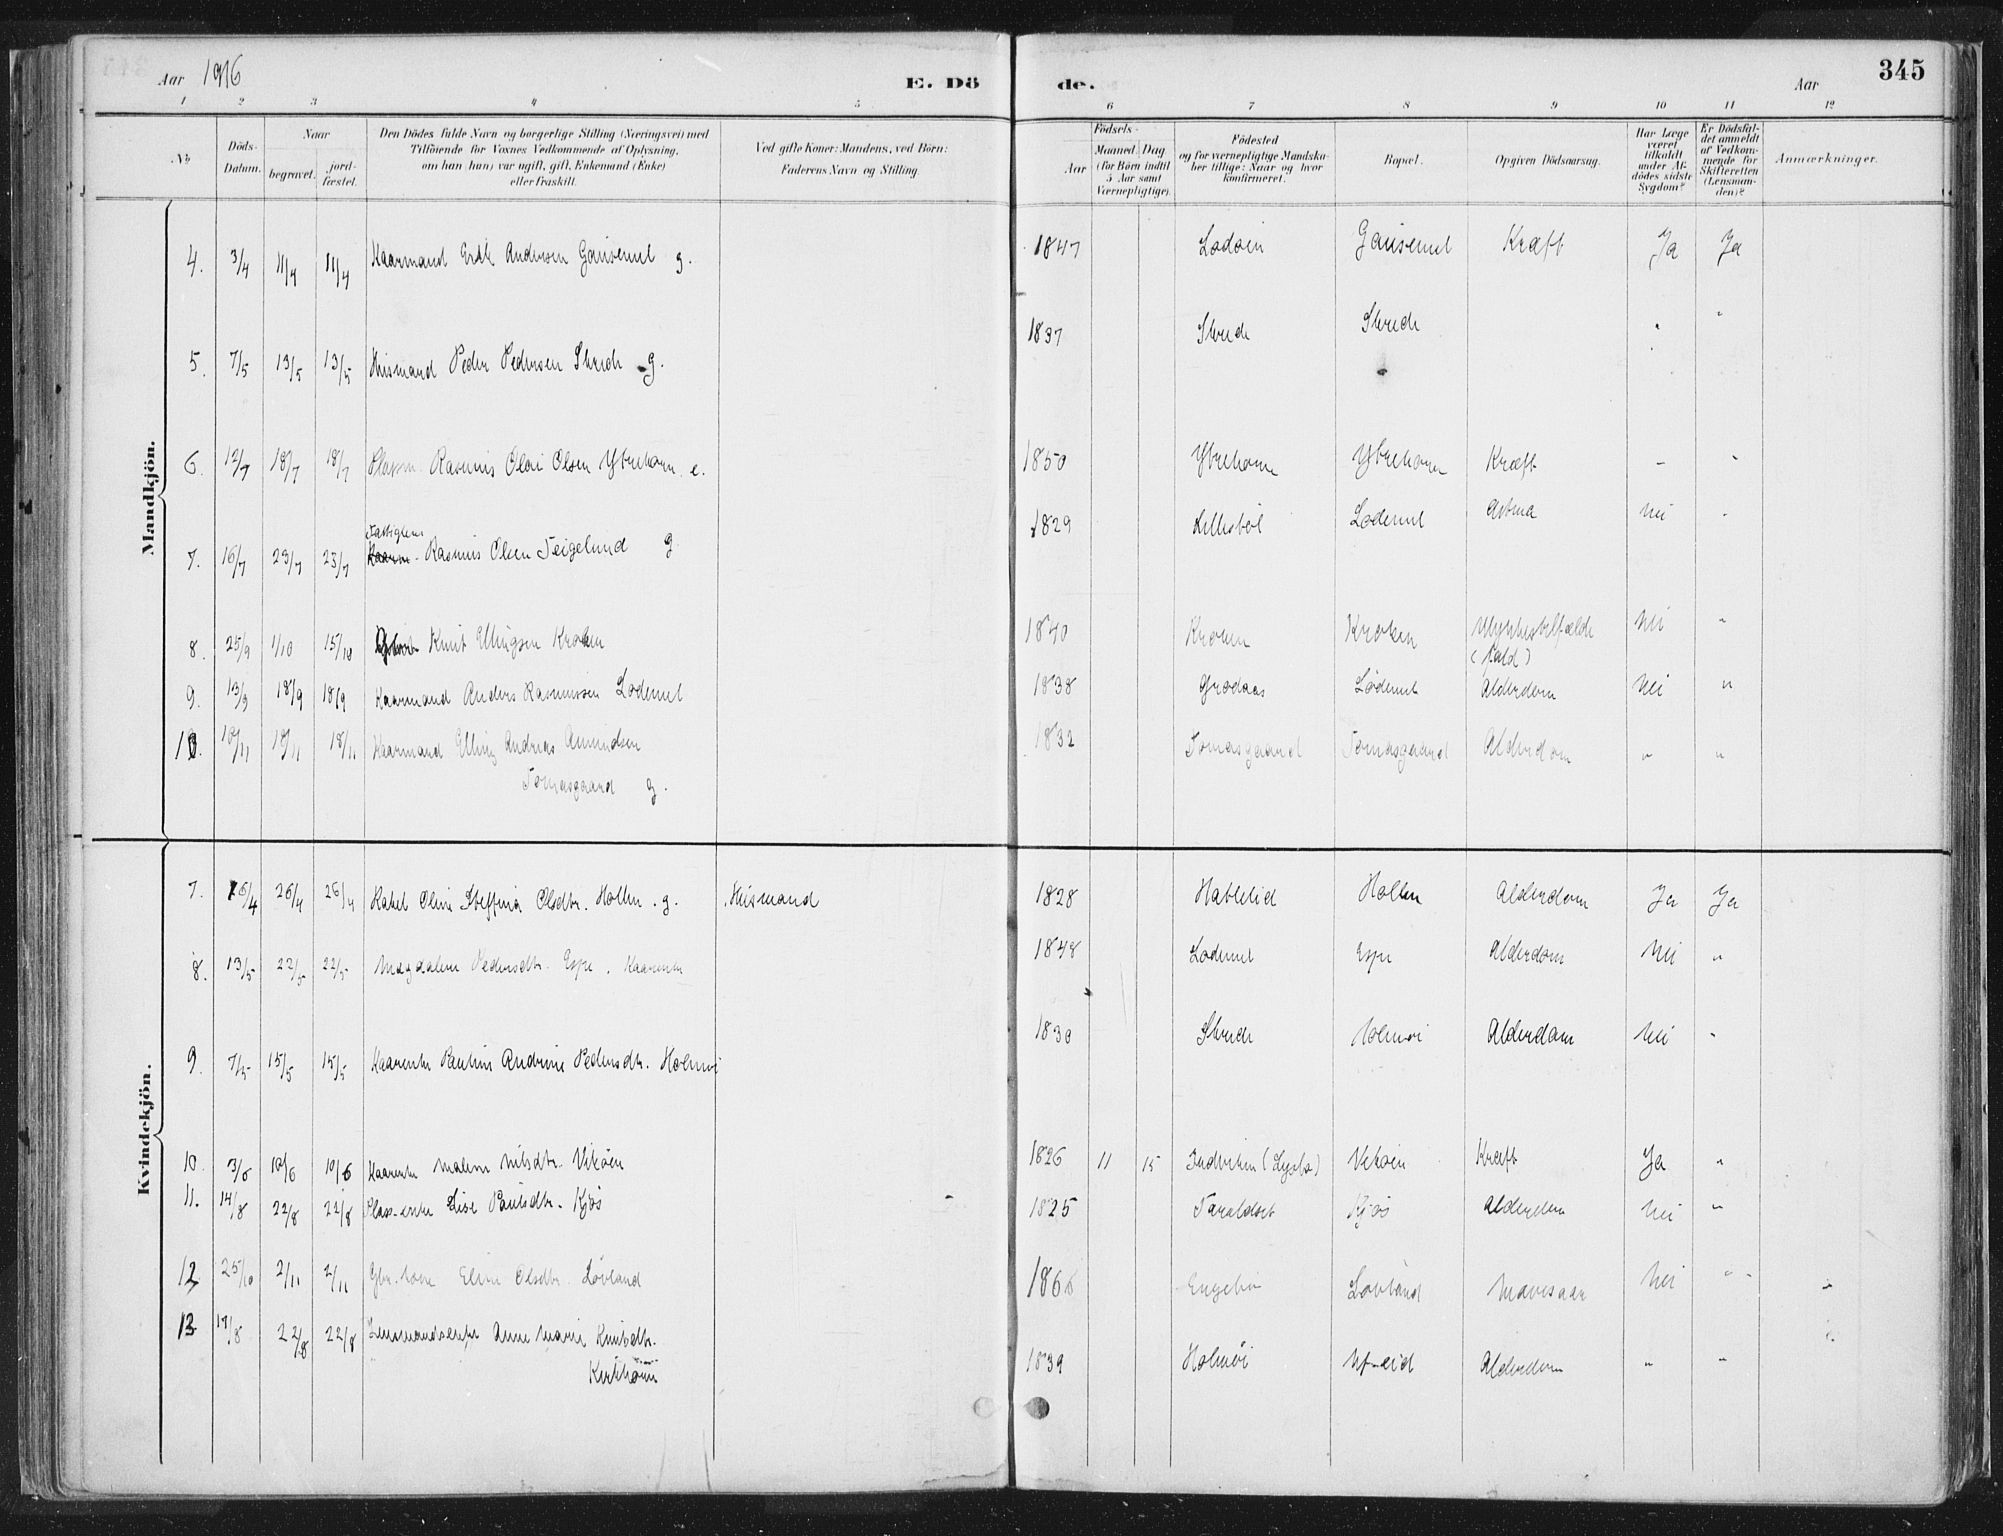 Aar 1916
E. Dö
de.
Aar
345
1 2 3 4 5 6 7 8 9 10 11 12
No
Döds-Datum.
Naar
begravet.
jordfæstet.
Den Dödes fulde Navn og borgerlige Stilling (Næringsvei) med
Tilföiende for Voxnes Vedkommende af Oplysning,
om han (hun) var ugift, gift, Enkemand (Enke)
eller fraskilt.
Ved gifte Koner: Mandens, ved Börn:
Faderens Navn og Stilling.
Födsels-
Aar
Maaned. Dag
(for Börn indtil
5 Aar samt
Værnepligtige).
Födested
og for værnepligtige Mandska-
ber tillige: Naar og hvor
konfirmeret.
Bopæl.
Opgiven Dödsaarsag.
Har Læge
været
tilkaldt
under Af-
dödes sidste
Sygdom?
Er Dödsfal-
det anmeldt
af Vedkom-
mende for
Skifteretten
(Lensman-
den)?
Anmærkninger.
Mandkjön.
4. 3/4 11/4 11/4 Kaarmand Andersen Gausemel g. 1847 Lødøen Gausemel Kræft Ja Ja
5. 7/5 13/5 13/5 Husmand Peder Pedersen Skrede g. 1837 Skrede Skrede " "
6. 12/7 18/7 18/7 Rasmus Olai Olsen Ytrehorn e. 1850 Ytrehorn Ytrehorn Kræft - "
Fattiglem
7. 16/7 23/7 23/7 Kaarm. Rasmus Olsen Teigelund g 1829 Lillebøl Lødemel Astma Nei "
8. 25/9 1/10 15/10 Knut Ellingsen Kroken 1840 Kroken Kroken Ulykkestilfælde Nei "
(fald)
9. 13/9 18/9 18/9 Kaarmand Anders Rasmussen Lødemel 1838 Grodaas Lødemel Alderdom Nei "
10. 10/11 18/11 18/11 Kaarmand Elling Andreas Amundsen 1832 Tomasgaard Tomasgaard Alderdom " "
Tomasgaard g.
Kvindekjön.
7. 16/4 26/4 26/4 Rakel Oline Steffina Olsdtr. Hollen. g. Husmand 1828 Hatlelid Hollen Alderdom Ja Ja
8. 13/5 22/5 22/5 Magdalene Pedersdtr. Espe. 1848 Lødemel Espe Alderdom Nei "
9. 7/5 15/5 15/5 Kaarenke Pauline Andrine Pedersdtr. Holmøi 1830 Skrede Holmøi Alderdom Nei "
10. 3/6 10/6 10/6 Kaarenke Malene Nilsdtr. Vikøen 1826 11 15 Indviken Vikøen Kræft Ja "
11. 14/8 22/8 22/8 Plass-enke Lise Paulsdtr. Kjøs 1825 Taraldset Kjøs Alderdom Nei "
12 25/10 2/11 2/11 Gbr. kone Eline Olsdtr. Løvland 1866 Engebø Løvland Mavesaar Nei "
13 17/8 22/8 22/8 Lensmandsenke Anne Marie Knutsdtr. 1839 Holmøi Alderdom " "
Kirkhorn